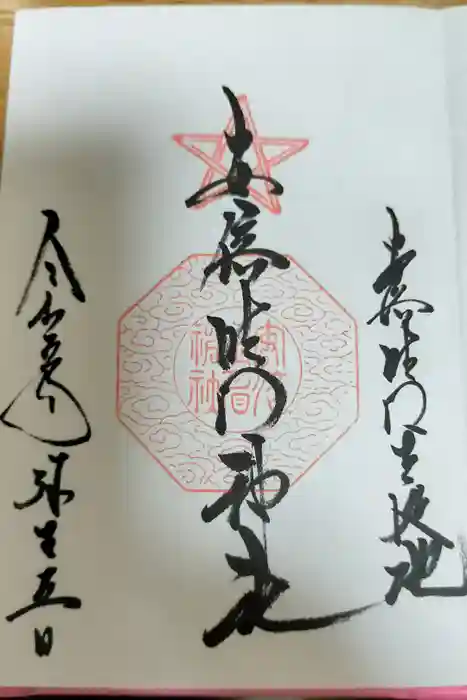 安倍晴明生誕地
安倍晴明神社
安倍晴明神社
令和 年 弥生五日